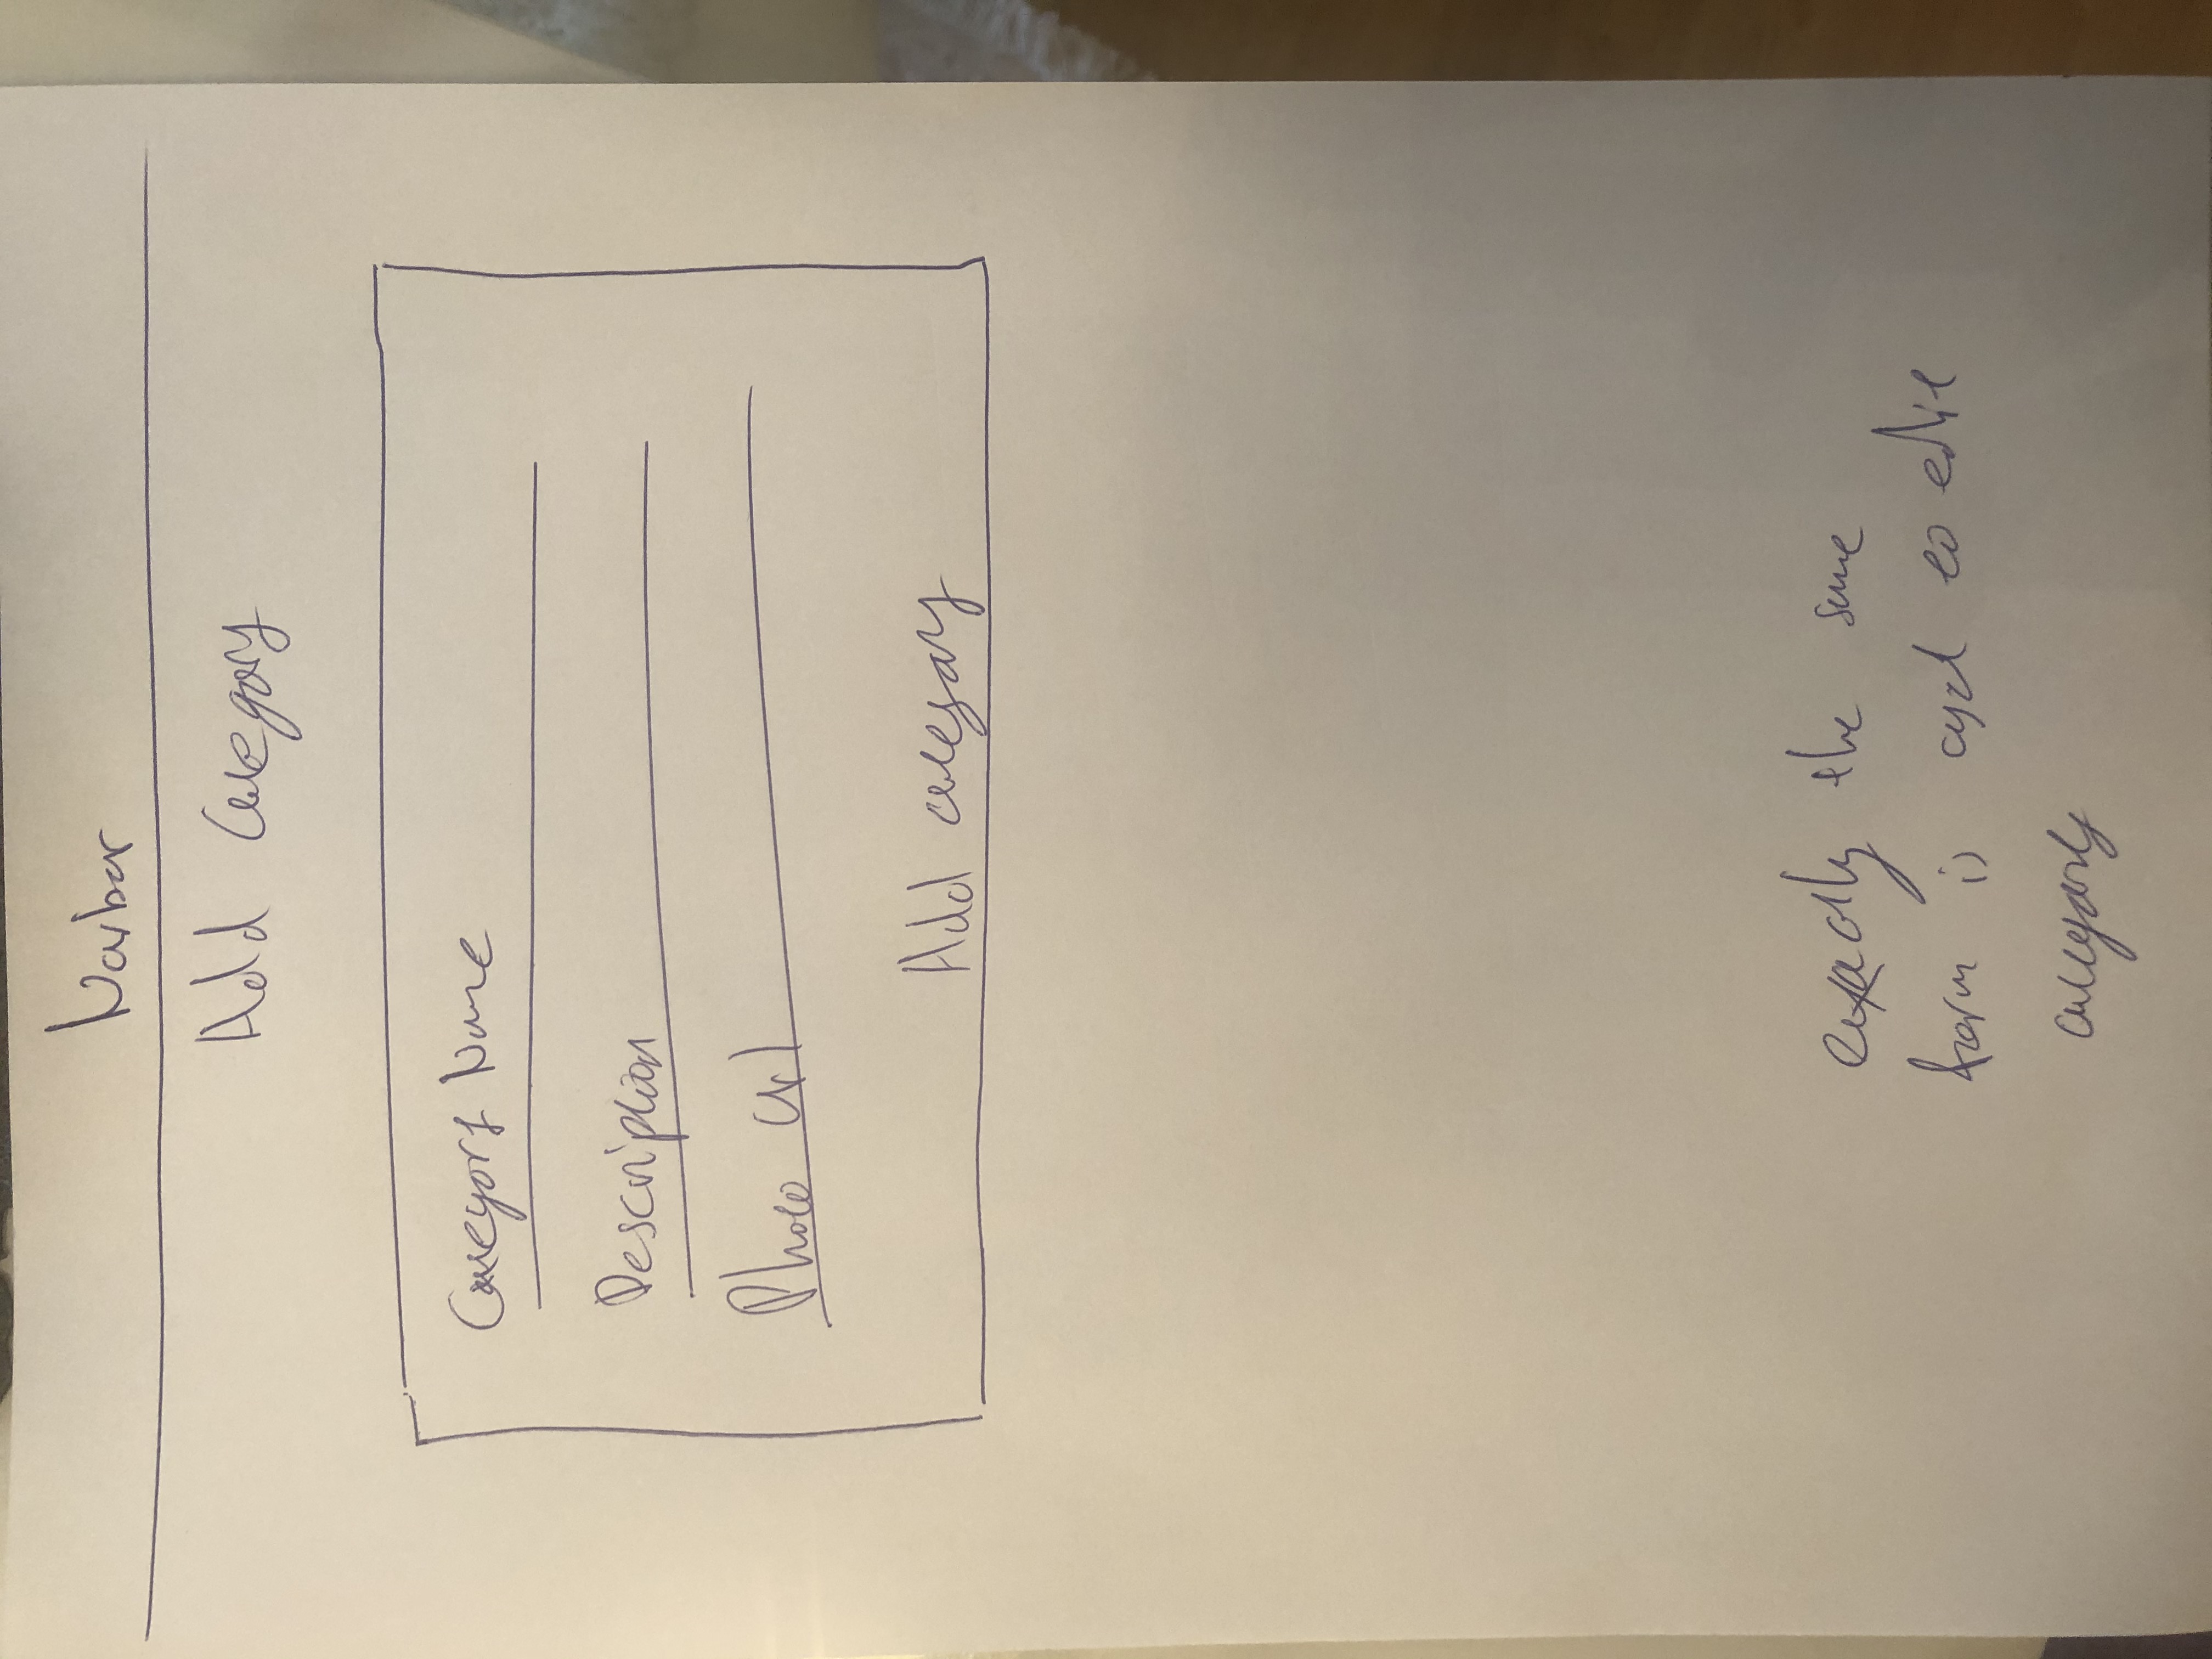 Navbar
Add Category
Category Name
Description
Photo Url
Add category
exactly the same
form is used to edit
category